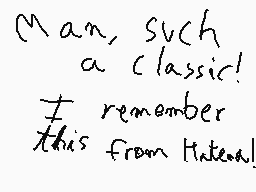 Man, such
a classic!
I remember
this from Hatena!